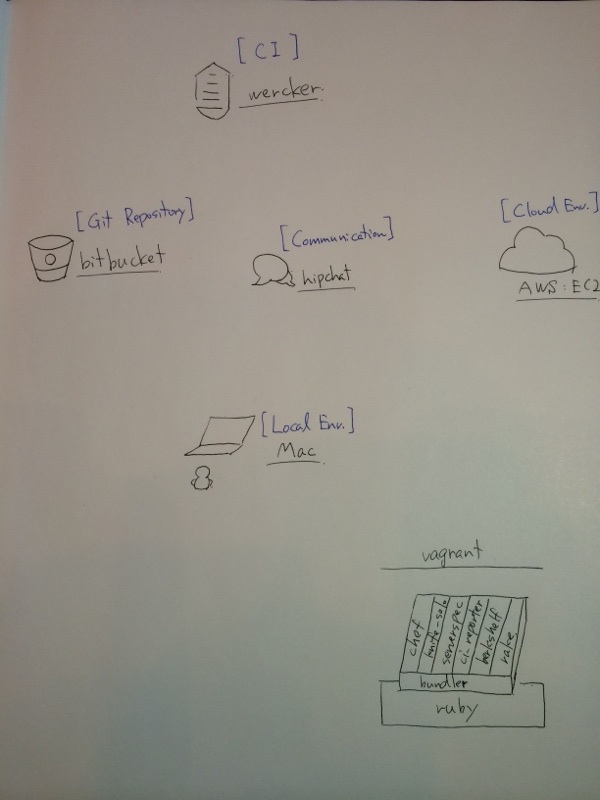 [CI]
wercker.
[Git Repository]
bitbucket
[Communication]
hipchat
[Cloud Env.]
AWS:EC2
[Local Env.]
Mac
vagrant
chef
knife-solo
serverspec
ci-reporter
berkshelf
rake
bundler
ruby